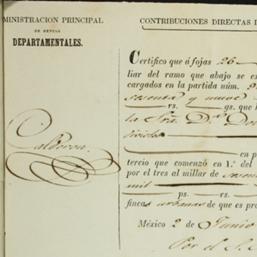 MINISTRACION PRINCIPAL
DE RENTAS
DEPARTAMENTALES.
CONTRIBUCIONES DIRECTAS D
Calderon
Certifico que á fojas 26
liar del ramo que abajo se ex
cargados en la partida núm.
sesenta y nueve
rs. gs. que i
la Sra. Da.
en p
tercio que comenzó en 1.º del
por el tres al millar de
mil
ps. rs.
fincas urbanas de que es pro
México 2 de Junio
Por el S.